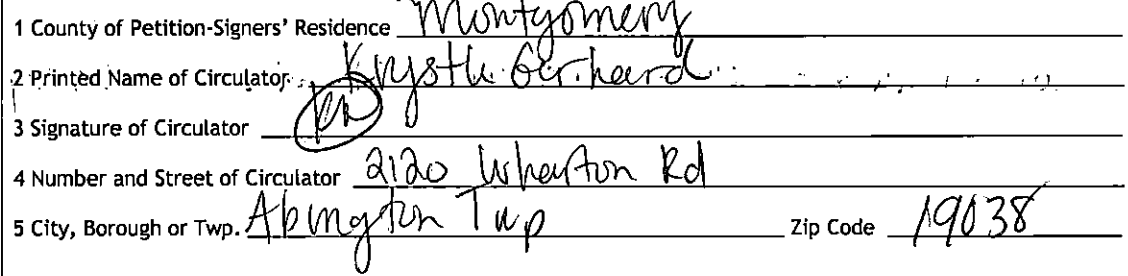 1 County of Petition-Signers' Residence Montgomery
2 Printed Name of Circulator Krystle Gerhard
3 Signature of Circulator
4 Number and Street of Circulator 2120 Wharton Rd
5 City, Borough or Twp. Abington Twp Zip Code 19038